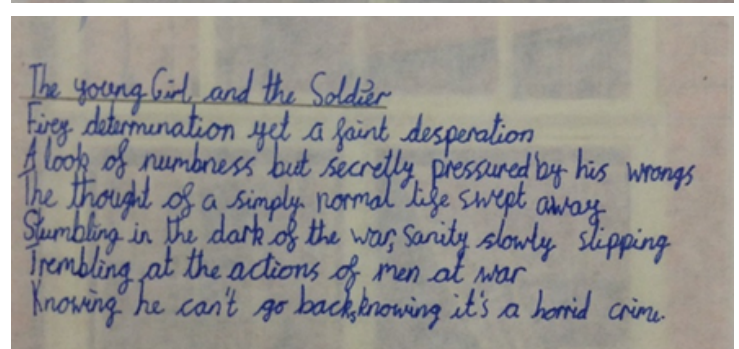 The young Girl and the Soldier
Firey determination yet a faint desperation
A look of numbness but secretly pressured by his wrongs
The thought of a simply normal life swept away
Stumbling in the dark of the war, sanity slowly slipping
Trembling at the actions of men at war
Knowing he can't go back, knowing it's a horrid crime.